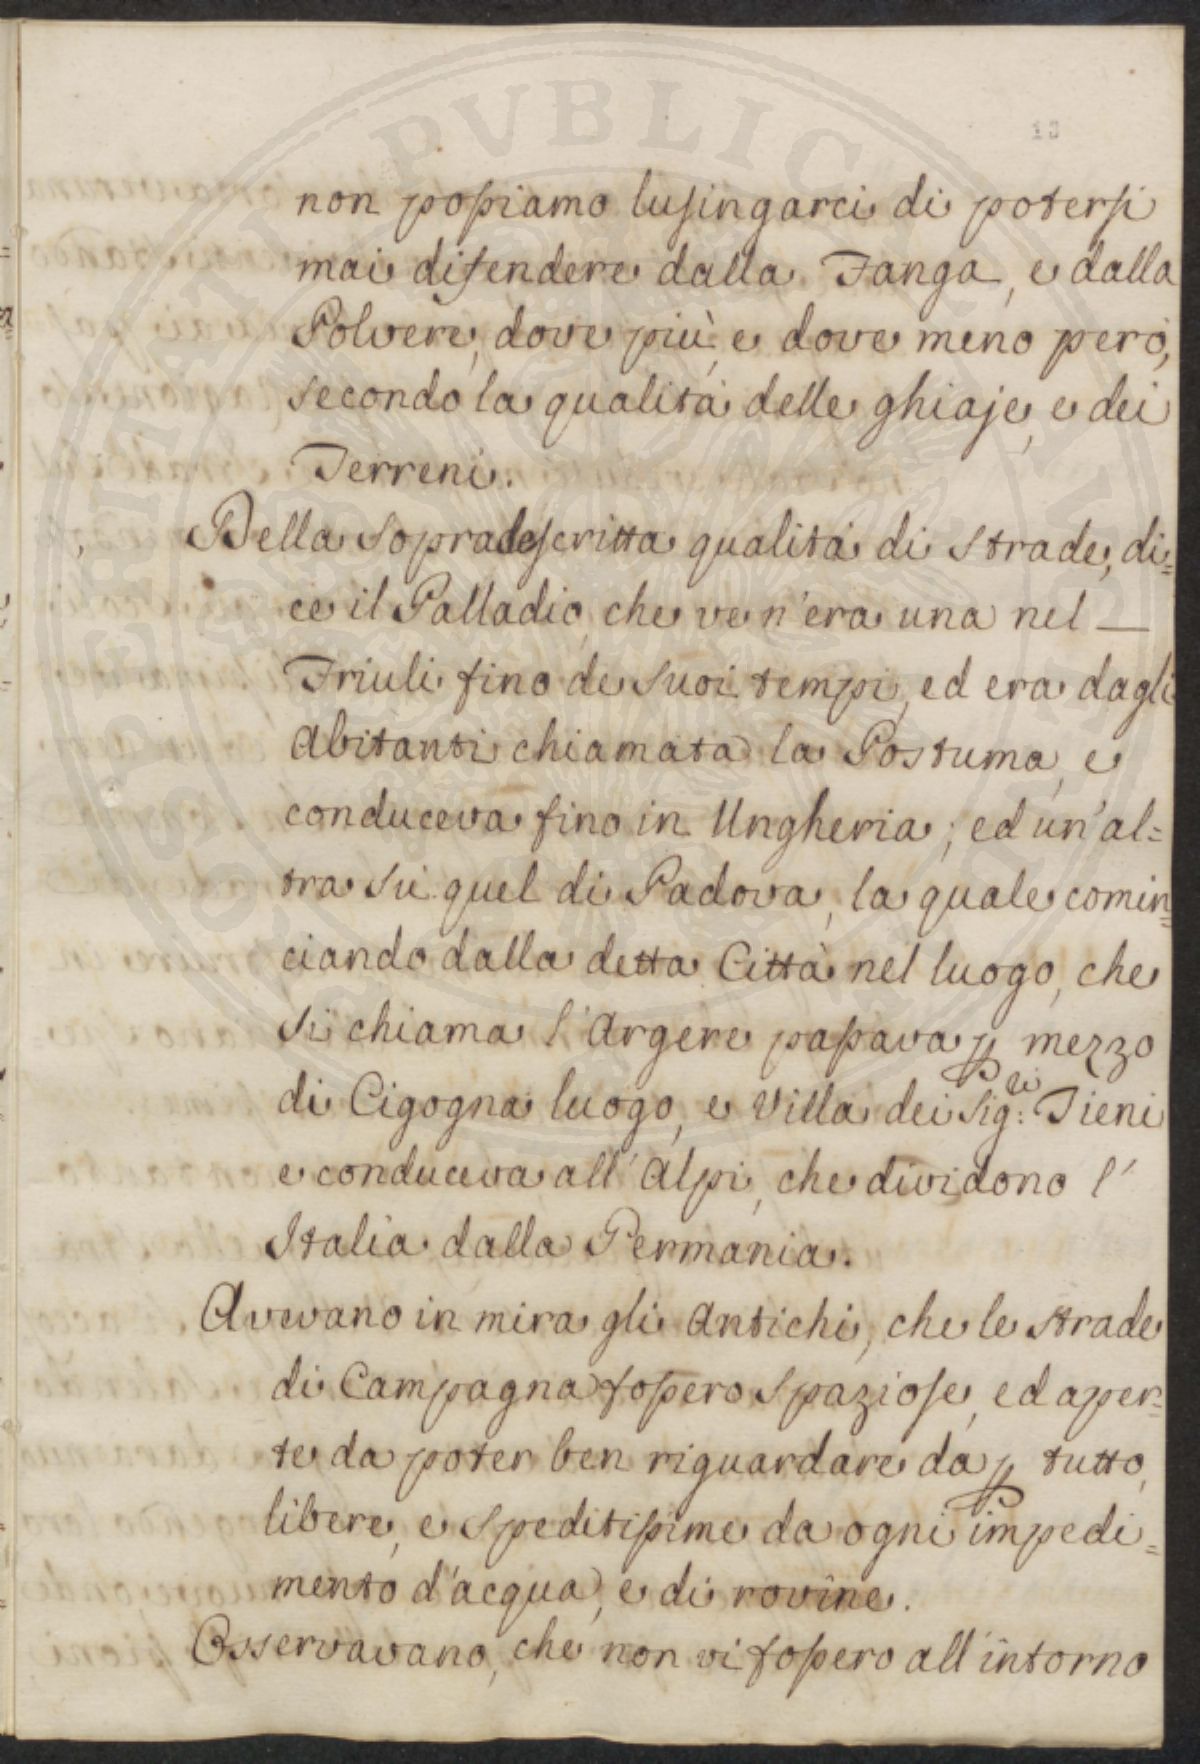 13
non possiamo lusingarci di potersi
mai difendere dalla Fanga, e dalla
Polvere, dove più, e dove meno però,
secondo la qualità delle ghiaje, e dei
Terreni.
Della sopradescritta qualità di strade, di=
ce il Palladio, che ve n'era una nel —
Friuli fino de suoi tempi, ed era dagli
Abitanti chiamata la Postuma, e
conduceva fino in Ungheria; ed un'al=
tra sù quel di Padova, la quale comin=
ciando dalla detta Città nel luogo, che
si chiama l'Argere passava p mezzo
di Cigogna luogo, e Villa dei Sig:ri Tieni
e conduceva all'Alpi, che dividono l'
Italia dalla Germania.
Avevano in mira gli Antichi, che le strade
di Campagna fossero spaziose, ed aper=
te da poter ben riguardare da p tutto,
libere, e speditissime da ogni impedi=
mento d'acqua, e di rovine.
Osservavano, che non vi fossero all'intorno